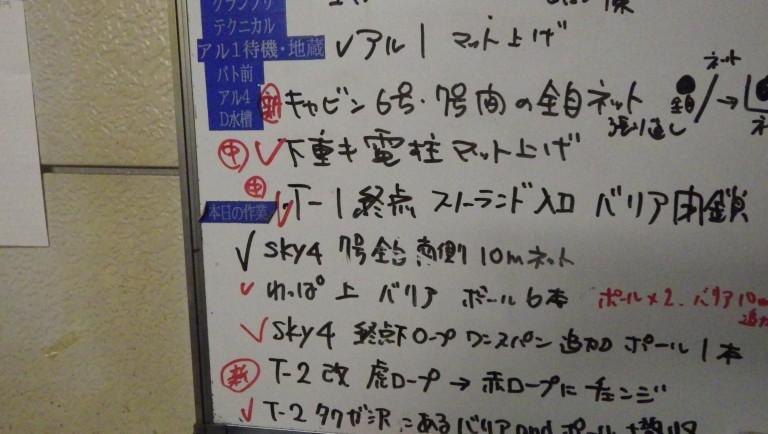 グランプリ
テクニカル
アル1待機・地蔵
パト前
アル4
D水槽
✓アル1 マット上げ
新 キャビン 6号・7号間の全自ネット 張り直し
全自 / → ネット
中 ✓下重キ電柱マット上げ
中 ✓T-1 終点 ストーランド入口 バリア閉鎖
本日の作業
✓sky4 7号全台 南側 10mネット
✓わっぱ°上 バリア ポール6本 ポール×2. バリア10m 追加
✓sky4 終点下ロープ ワンスパン 追加 ポール1本
新 T-2 改 虎ロープ → 赤ロープにチェンジ
✓T-2 タケガ沢にあるバリアandポール